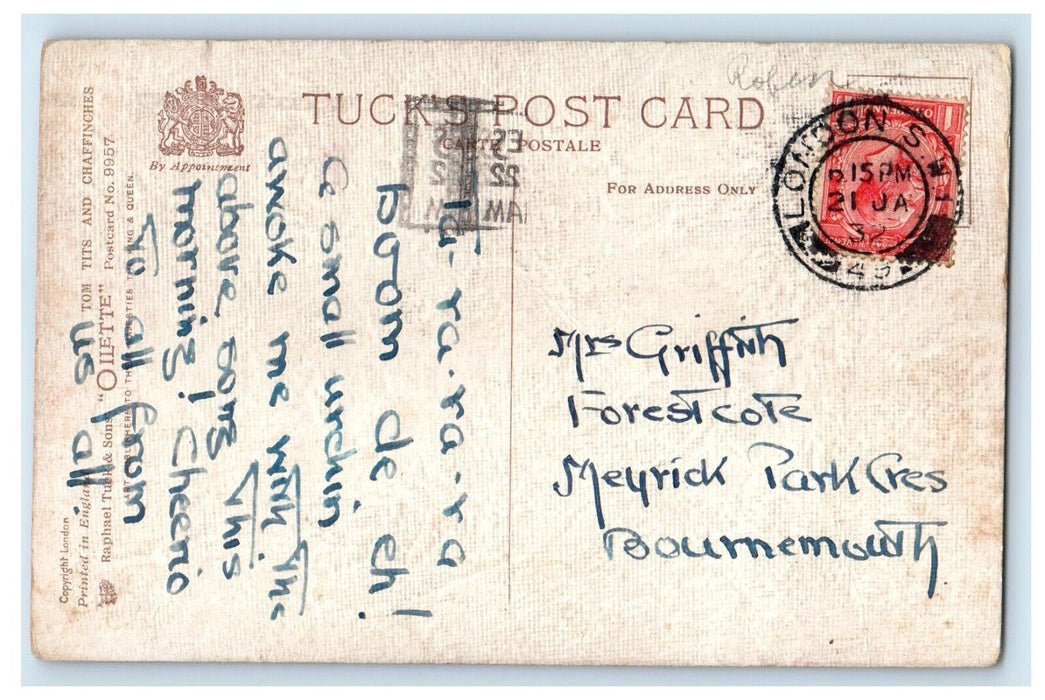 Robin
TUCK'S POST CARD
CARTE POSTALE
By Appointment
FOR ADDRESS ONLY
LONDON S.W.1
15 PM
21 JA
32
49
Mrs Griffith
Forestcote
Meyrick Park Cres
Bournemouth
Ta-ra-ra-ra
boom de eh!
A small urchin
awoke me with the
above song this
morning! Cheerio
To all from
us all
TOM TITS AND CHAFFINCHES
Raphael Tuck & Sons' "OILETTE" Postcard No. 9957
PUBLISHERS TO THEIR MAJESTIES THE KING & QUEEN.
Printed in England
Copyright London